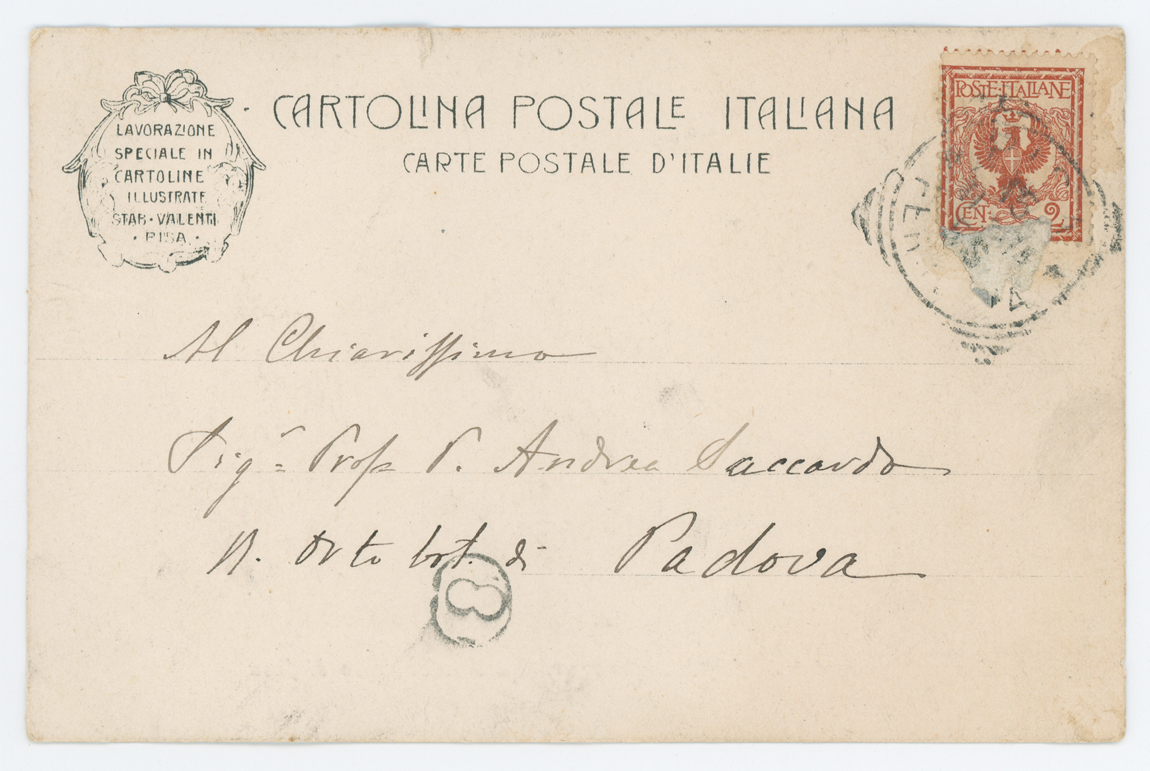 LAVORAZIONE
SPECIALE IN
CARTOLINE
ILLUSTRATE
STAB·VALENTI
·PISA·
CARTOLINA POSTALE ITALIANA
CARTE POSTALE D'ITALIE
POSTE·ITALIANE
CEN· 2
Al Chiarissimo
Sigr Prof P. Andrea Saccardo
R. Orto bot. di Padova
8